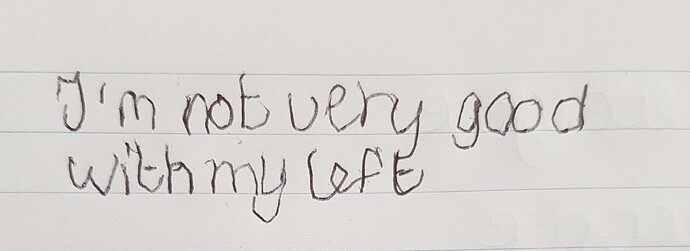 I'm not very good
with my left